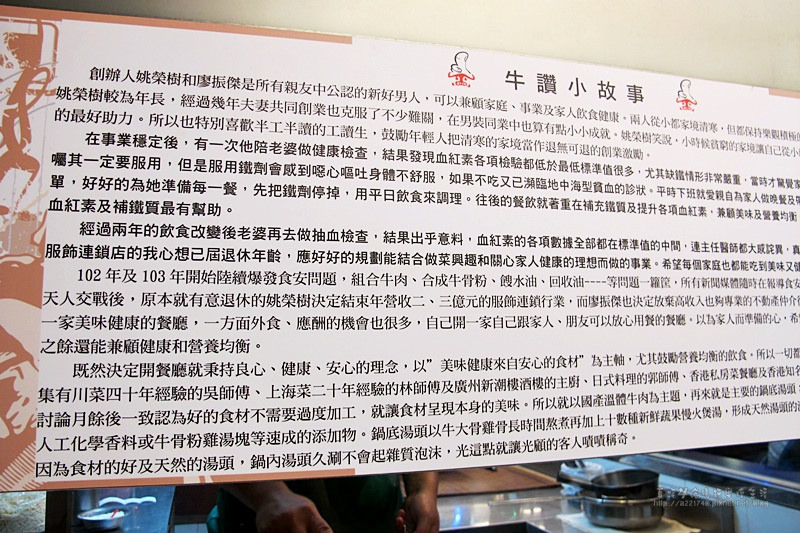 牛讚小故事
創辦人姚榮樹和廖振傑是所有親友中公認的新好男人，可以兼顧家庭、事業及家人飲食健康。兩人從小都家境清寒，但都保持樂觀積極
姚榮樹較為年長，經過幾年夫妻共同創業也克服了不少難關，在男裝同業中也算有點小小成就。姚榮樹笑說，小時候貧窮的家境讓自己從小
的最好助力。所以也特別喜歡半工半讀的工讀生，鼓勵年輕人把清寒的家境當作退無可退的創業激勵。
在事業穩定後，有一次他陪老婆做健康檢查，結果發現血紅素各項檢驗都低於最低標準值很多，尤其缺鐵情形非常嚴重，當時才驚覺家
囑其一定要服用，但是服用鐵劑會感到噁心嘔吐身體不舒服，如果不吃又已瀕臨地中海型貧血的診狀。平時下班就愛親自為家人做晚餐及帶
單，好好的為她準備每一餐，先把鐵劑停掉，用平日飲食來調理。往後的餐飲就著重在補充鐵質及提升各項血紅素，兼顧美味及營養均衡
血紅素及補鐵質最有幫助。
經過兩年的飲食改變後老婆再去做抽血檢查，結果出乎意料，血紅素的各項數據全部都在標準值的中間，連主任醫師都大感詫異，真
服飾連鎖店的我心想已屆退休年齡，應好好的規劃能結合做菜興趣和關心家人健康的理想而做的事業。希望每個家庭也都能吃到美味又健
102 年及 103 年開始陸續爆發食安問題，組合牛肉、合成牛骨粉、餿水油、回收油----等問題一籮筐，所有新聞媒體隨時在報導食安
天人交戰後，原本就有意退休的姚榮樹決定結束年營收二、三億元的服飾連鎖行業，而廖振傑也決定放棄高收入也夠專業的不動產仲介
一家美味健康的餐廳，一方面外食、應酬的機會也很多，自己開一家自己跟家人、朋友可以放心用餐的餐廳。以為家人而準備的心，希
之餘還能兼顧健康和營養均衡。
既然決定開餐廳就秉持良心、健康、安心的理念，以”美味健康來自安心的食材”為主軸，尤其鼓勵營養均衡的飲食。所以一切都
集有川菜四十年經驗的吳師傅、上海菜二十年經驗的林師傅及廣州新潮樓酒樓的主廚、日式料理的郭師傅、香港私房菜餐廳及香港知名
討論月餘後一致認為好的食材不需要過度加工，就讓食材呈現本身的美味。所以就以國產溫體牛肉為主題，再來就是主要的鍋底湯頭
人工化學香料或牛骨粉雞湯塊等速成的添加物。鍋底湯頭以牛大骨雞骨長時間熬煮再加上十數種新鮮蔬果慢火煲湯，形成天然湯頭的
因為食材的好及天然的湯頭，鍋內湯頭久涮不會起雜質泡沫，光這點就讓光顧的客人嘖嘖稱奇。